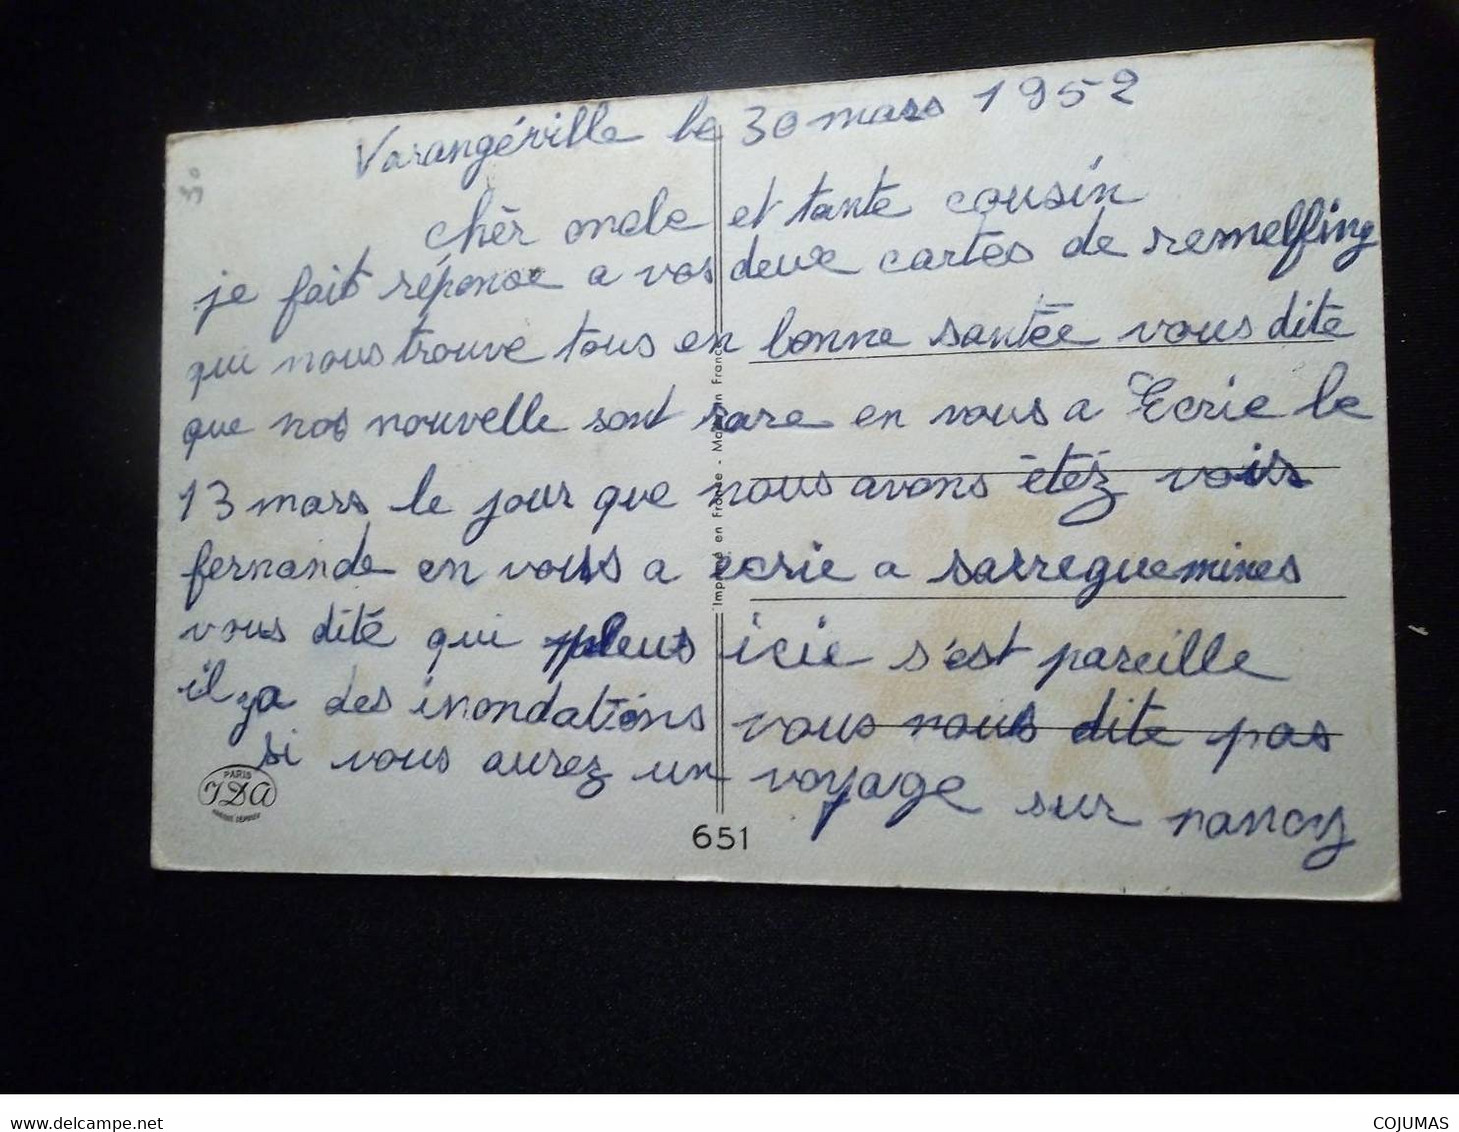 Varangéville le 30 mars 1952
chèr oncle et tante cousin
je fait réponse a vos deux cartes de remelfing
qui nous trouve tous en bonne santée vous dite
que nos nouvelle sont rare en vous a Ecrie le
13 mars le jour que nous avons étéz voir
fernande en vous a ecrie a sarreguemines
vous dité qui pleus icie s'est pareille
il ya des inondations vous nous dite pas
si vous aurez un voyage sur nancy
30
Imprimé en France - Made in France
PARIS
IDA
651
delcampe.net
COJUMAS